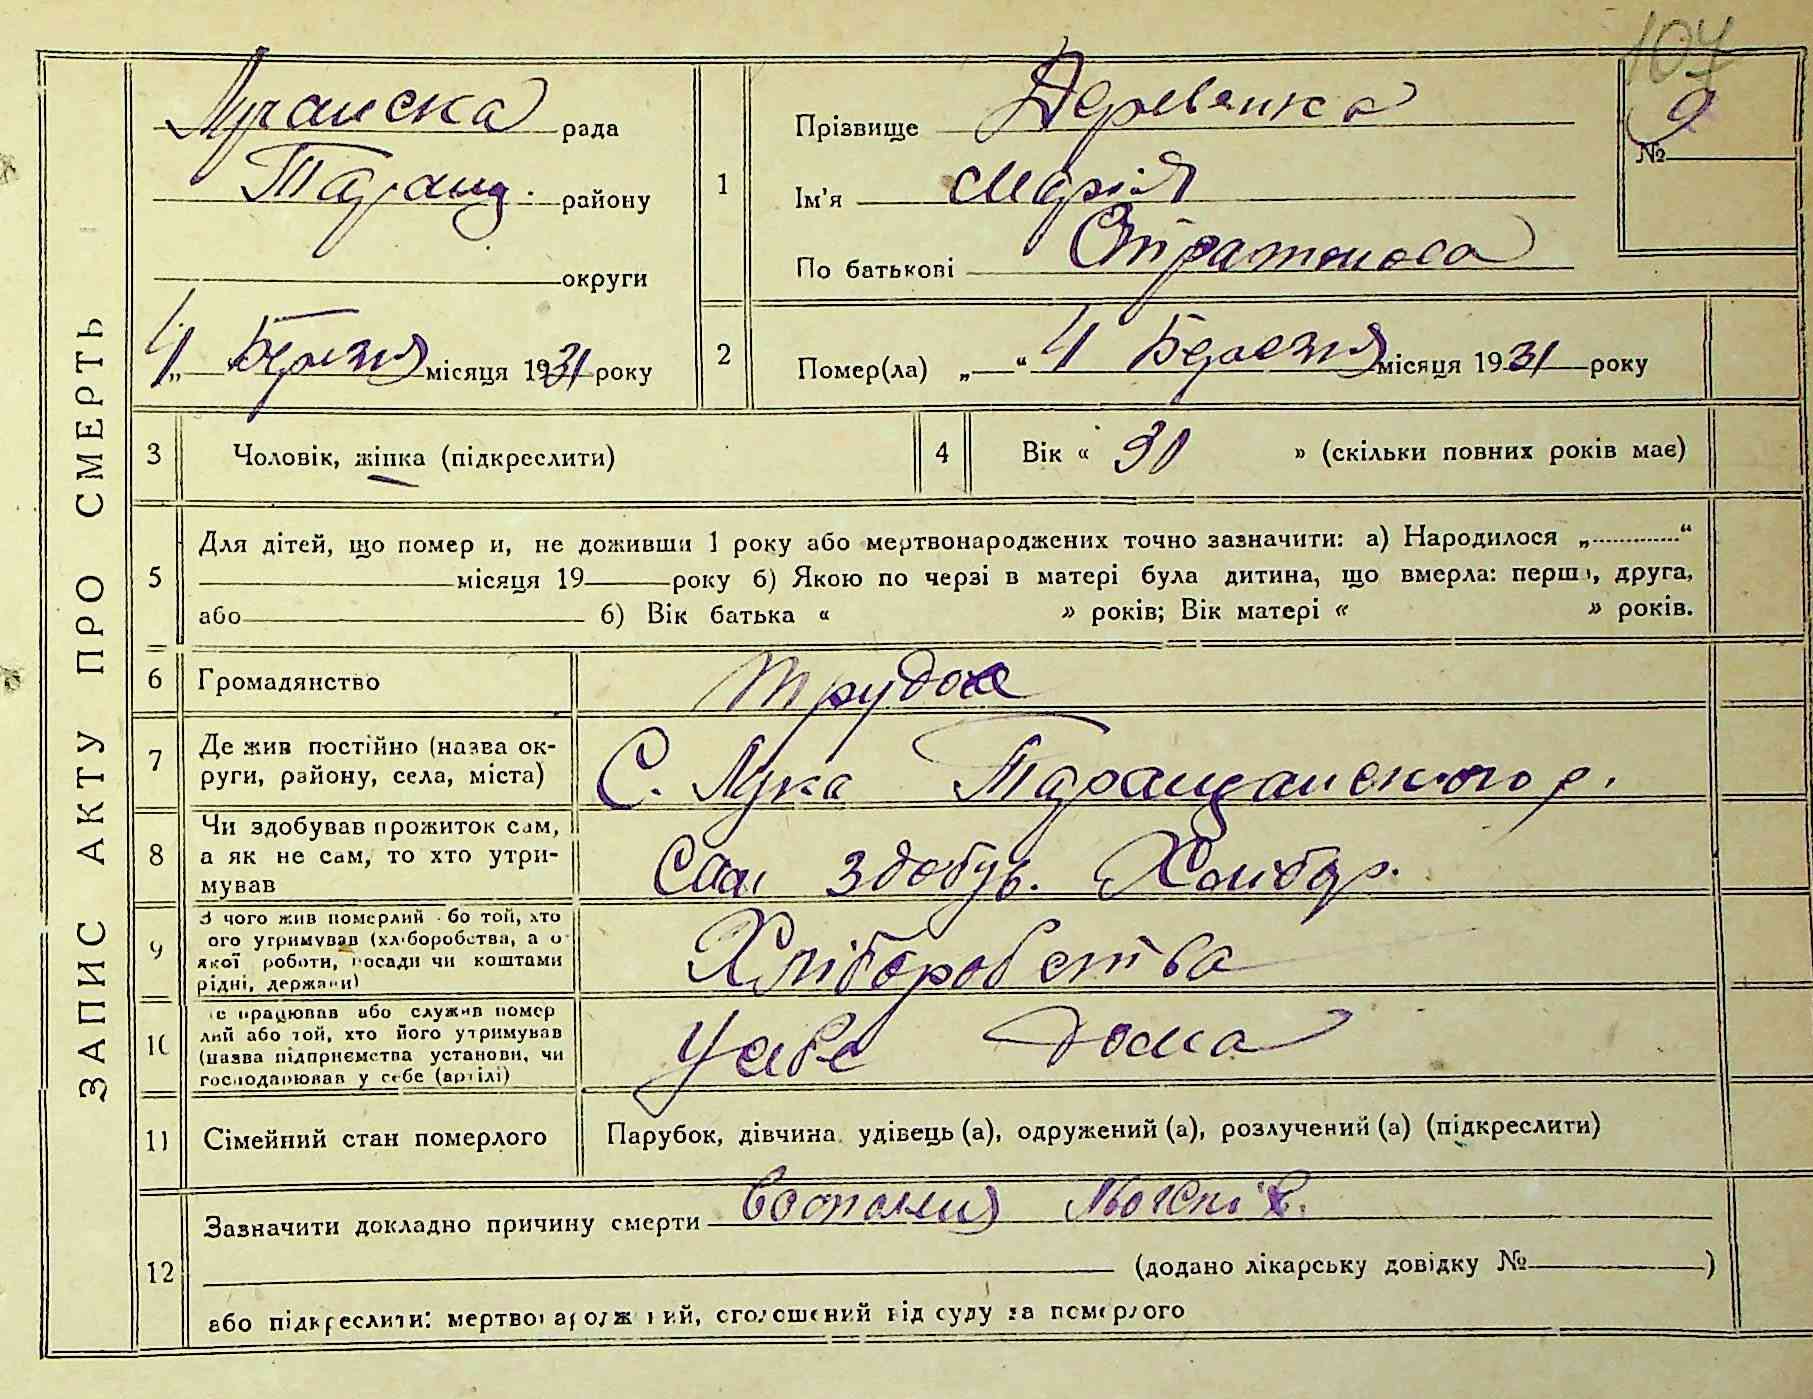 107
ЗАПИС АКТУ ПРО СМЕРТЬ
Лучанска рада
Таращ. району
округи
4 „ Березня місяця 1931 року
1 Прізвище Деревянка
Ім'я Марія
По батькові Стратонова
№ 9
2 Помер(ла) „ “ 4 Березня місяця 1931 року
3 Чоловік, жінка (підкреслити)
4 Вік « 30 » (скільки повних років має)
5 Для дітей, що помер и, не доживши 1 року або мертвонароджених точно зазначити: а) Народилося „ “
місяця 19 року б) Якою по черзі в матері була дитина, що вмерла: перша, друга,
або б) Вік батька « » років; Вік матері « » років.
6 Громадянство Трудов
7 Де жив постійно (назва ок-
руги, району, села, міста) С. Лука Таращанского р.
8 Чи здобував прожиток сам,
а як не сам, то хто утри-
мував Сам здобув. Хлибор.
9 З чого жив померлий або той, хто
його утримував (хліборобства, а о
якої роботи, посади чи коштами
рідні, держави) Хліборобства
10 Де працював або служив помер
лий або той, хто його утримував
(назва підприємства установи, чи
господарював у себе (артілі) У себе дома
11 Сімейний стан померлого Парубок, дівчина, удівець (а), одружений (а), розлучений (а) (підкреслити)
12 Зазначити докладно причину смерти
(додано лікарську довідку № )
або підкреслити: мертвонароджений, оголошений від суду за померлого